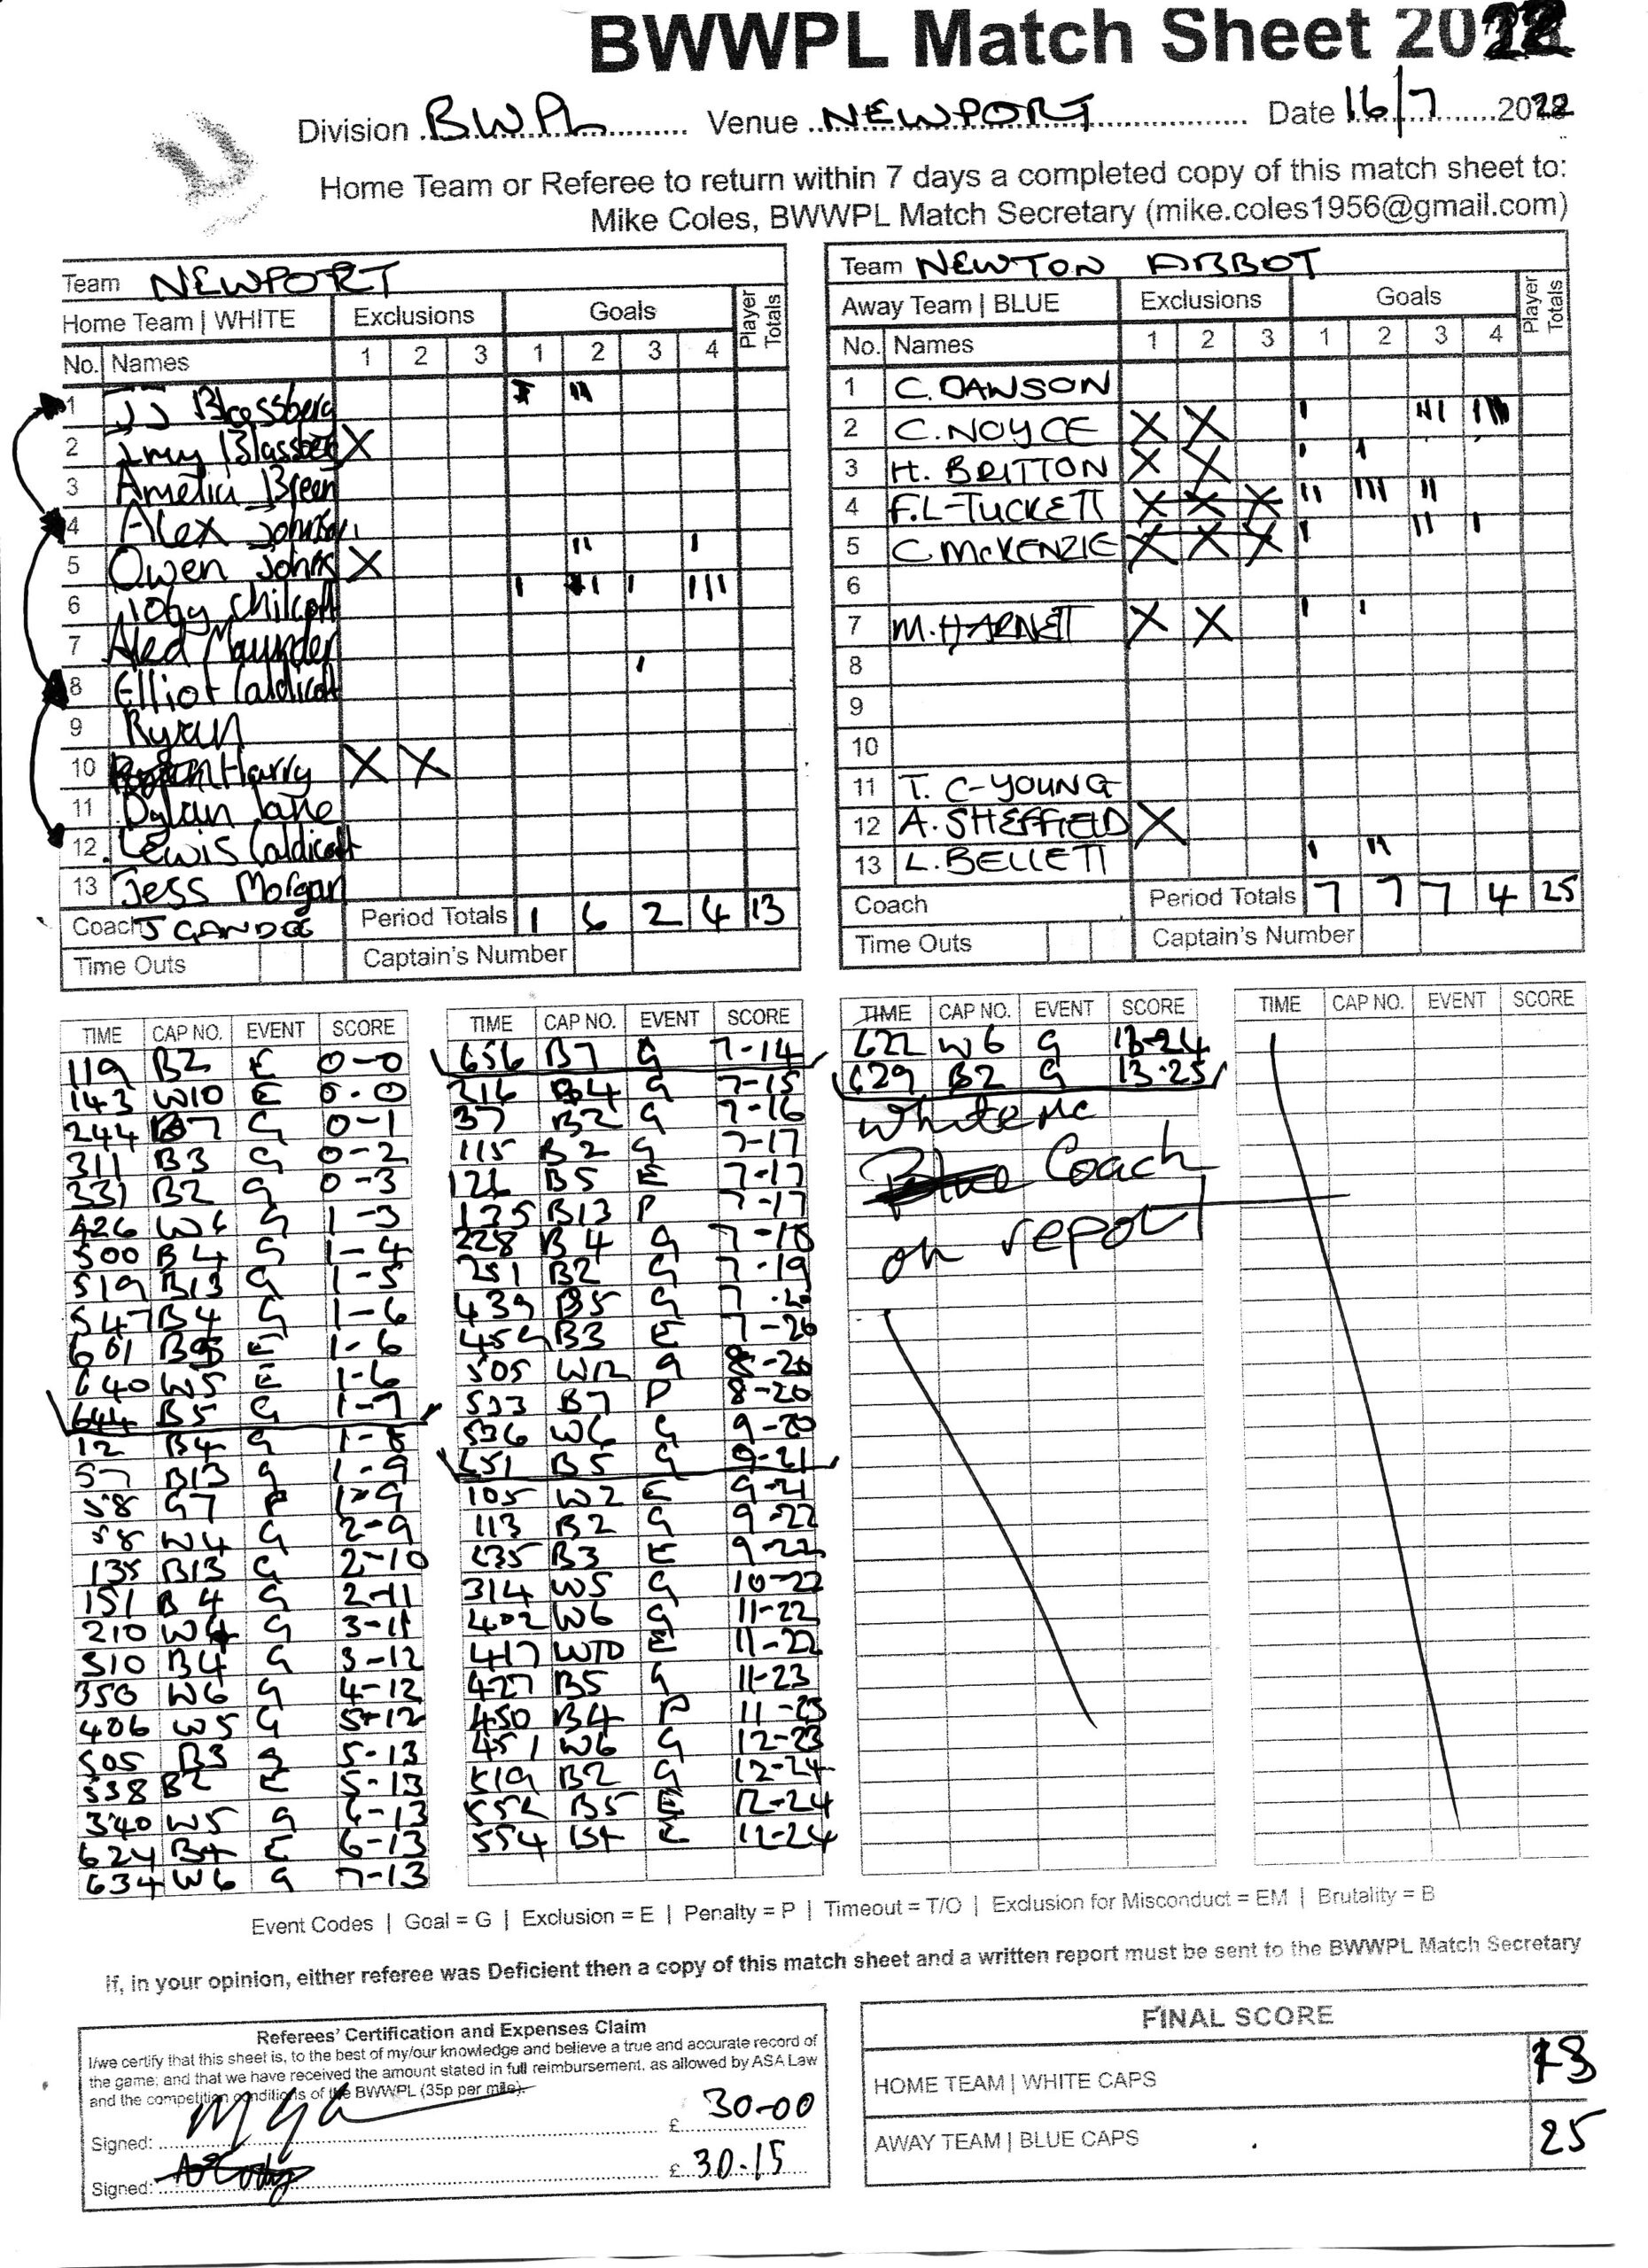 BWWPL Match Sheet 2022
Division BWPL Venue NEWPORT Date 16/7 2022
Home Team or Referee to return within 7 days a completed copy of this match sheet to:
Mike Coles, BWWPL Match Secretary (mike.coles1956@gmail.com)
Team NEWPORT
Home Team | WHITE Exclusions Goals Player Totals
No. Names 1 2 3 1 2 3 4
1 JJ Blassberg
2 Imy Blassberg X
3 Amelia Breen
4 Alex Johnson
5 Owen Johns X
6 Toby Chilcott
7 Aled Maunder
8 Elliot Caldicott
9 Ryan
10 Harry X X
11 Dylan Jane
12 Lewis Caldicott
13 Jess Morgan
Coach J GANDOE Period Totals 1 6 2 4 13
Time Outs Captain's Number
Team NEWTON ABBOT
Away Team | BLUE Exclusions Goals Player Totals
No. Names 1 2 3 1 2 3 4
1 C. DAWSON
2 C. NOYCE X X
3 H. BRITTON X X
4 F.L-TUCKETT X X X
5 C. McKENZIE X X X
6
7 M. HARNETT X X
8
9
10
11 T. C-YOUNG
12 A. SHEFFIELD X
13 L. BELLETT
Coach Period Totals 7 7 7 4 25
Time Outs Captain's Number
TIME CAP NO. EVENT SCORE
119 B2 E 0-0
143 W10 E 0-0
244 B7 G 0-1
311 B3 G 0-2
331 B2 G 0-3
426 W6 G 1-3
500 B4 G 1-4
519 B13 G 1-5
547 B4 G 1-6
601 E 1-6
640 W5 E 1-6
644 B5 G 1-7
12 B4 G 1-8
57 B13 G 1-9
58 G7 P 1-9
58 W4 G 2-9
135 B13 G 2-10
151 B4 G 2-11
210 W4 G 3-11
310 B4 G 3-12
350 W6 G 4-12
406 W5 G 5-12
505 B3 G 5-13
538 B2 E 5-13
540 W5 G 6-13
624 B4 E 6-13
634 W6 G 7-13
TIME CAP NO. EVENT SCORE
656 B7 G 7-14
216 B4 G 7-15
37 B2 G 7-16
115 B2 G 7-17
121 B5 E 7-17
135 B13 P 7-17
228 B4 G 7-18
251 B2 G 7-19
439 B5 G 7-20
459 B3 E 7-20
505 W12 G 8-20
523 B7 P 8-20
536 W6 G 9-20
651 B5 G 9-21
105 W2 E 9-21
113 B2 G 9-22
235 B3 E 9-22
314 W5 G 10-22
402 W6 G 11-22
417 W10 E 11-22
427 B5 G 11-23
450 B4 P 11-23
451 W6 G 12-23
519 B2 G 12-24
552 B5 E 12-24
554 B4 E 12-24
TIME CAP NO. EVENT SCORE
622 W6 G 13-24
629 B2 G 13-25
White
Blue Coach
on report
TIME CAP NO. EVENT SCORE
Event Codes | Goal = G | Exclusion = E | Penalty = P | Timeout = T/O | Exclusion for Misconduct = EM | Brutality = B
If, in your opinion, either referee was Deficient then a copy of this match sheet and a written report must be sent to the BWWPL Match Secretary
Referees' Certification and Expenses Claim
I/we certify that this sheet is, to the best of my/our knowledge and believe a true and accurate record of
the game; and that we have received the amount stated in full reimbursement, as allowed by ASA Law
and the competition conditions of the BWWPL (35p per mile).
Signed: £ 30-00
Signed: £ 30.15
FINAL SCORE
HOME TEAM | WHITE CAPS 13
AWAY TEAM | BLUE CAPS 25